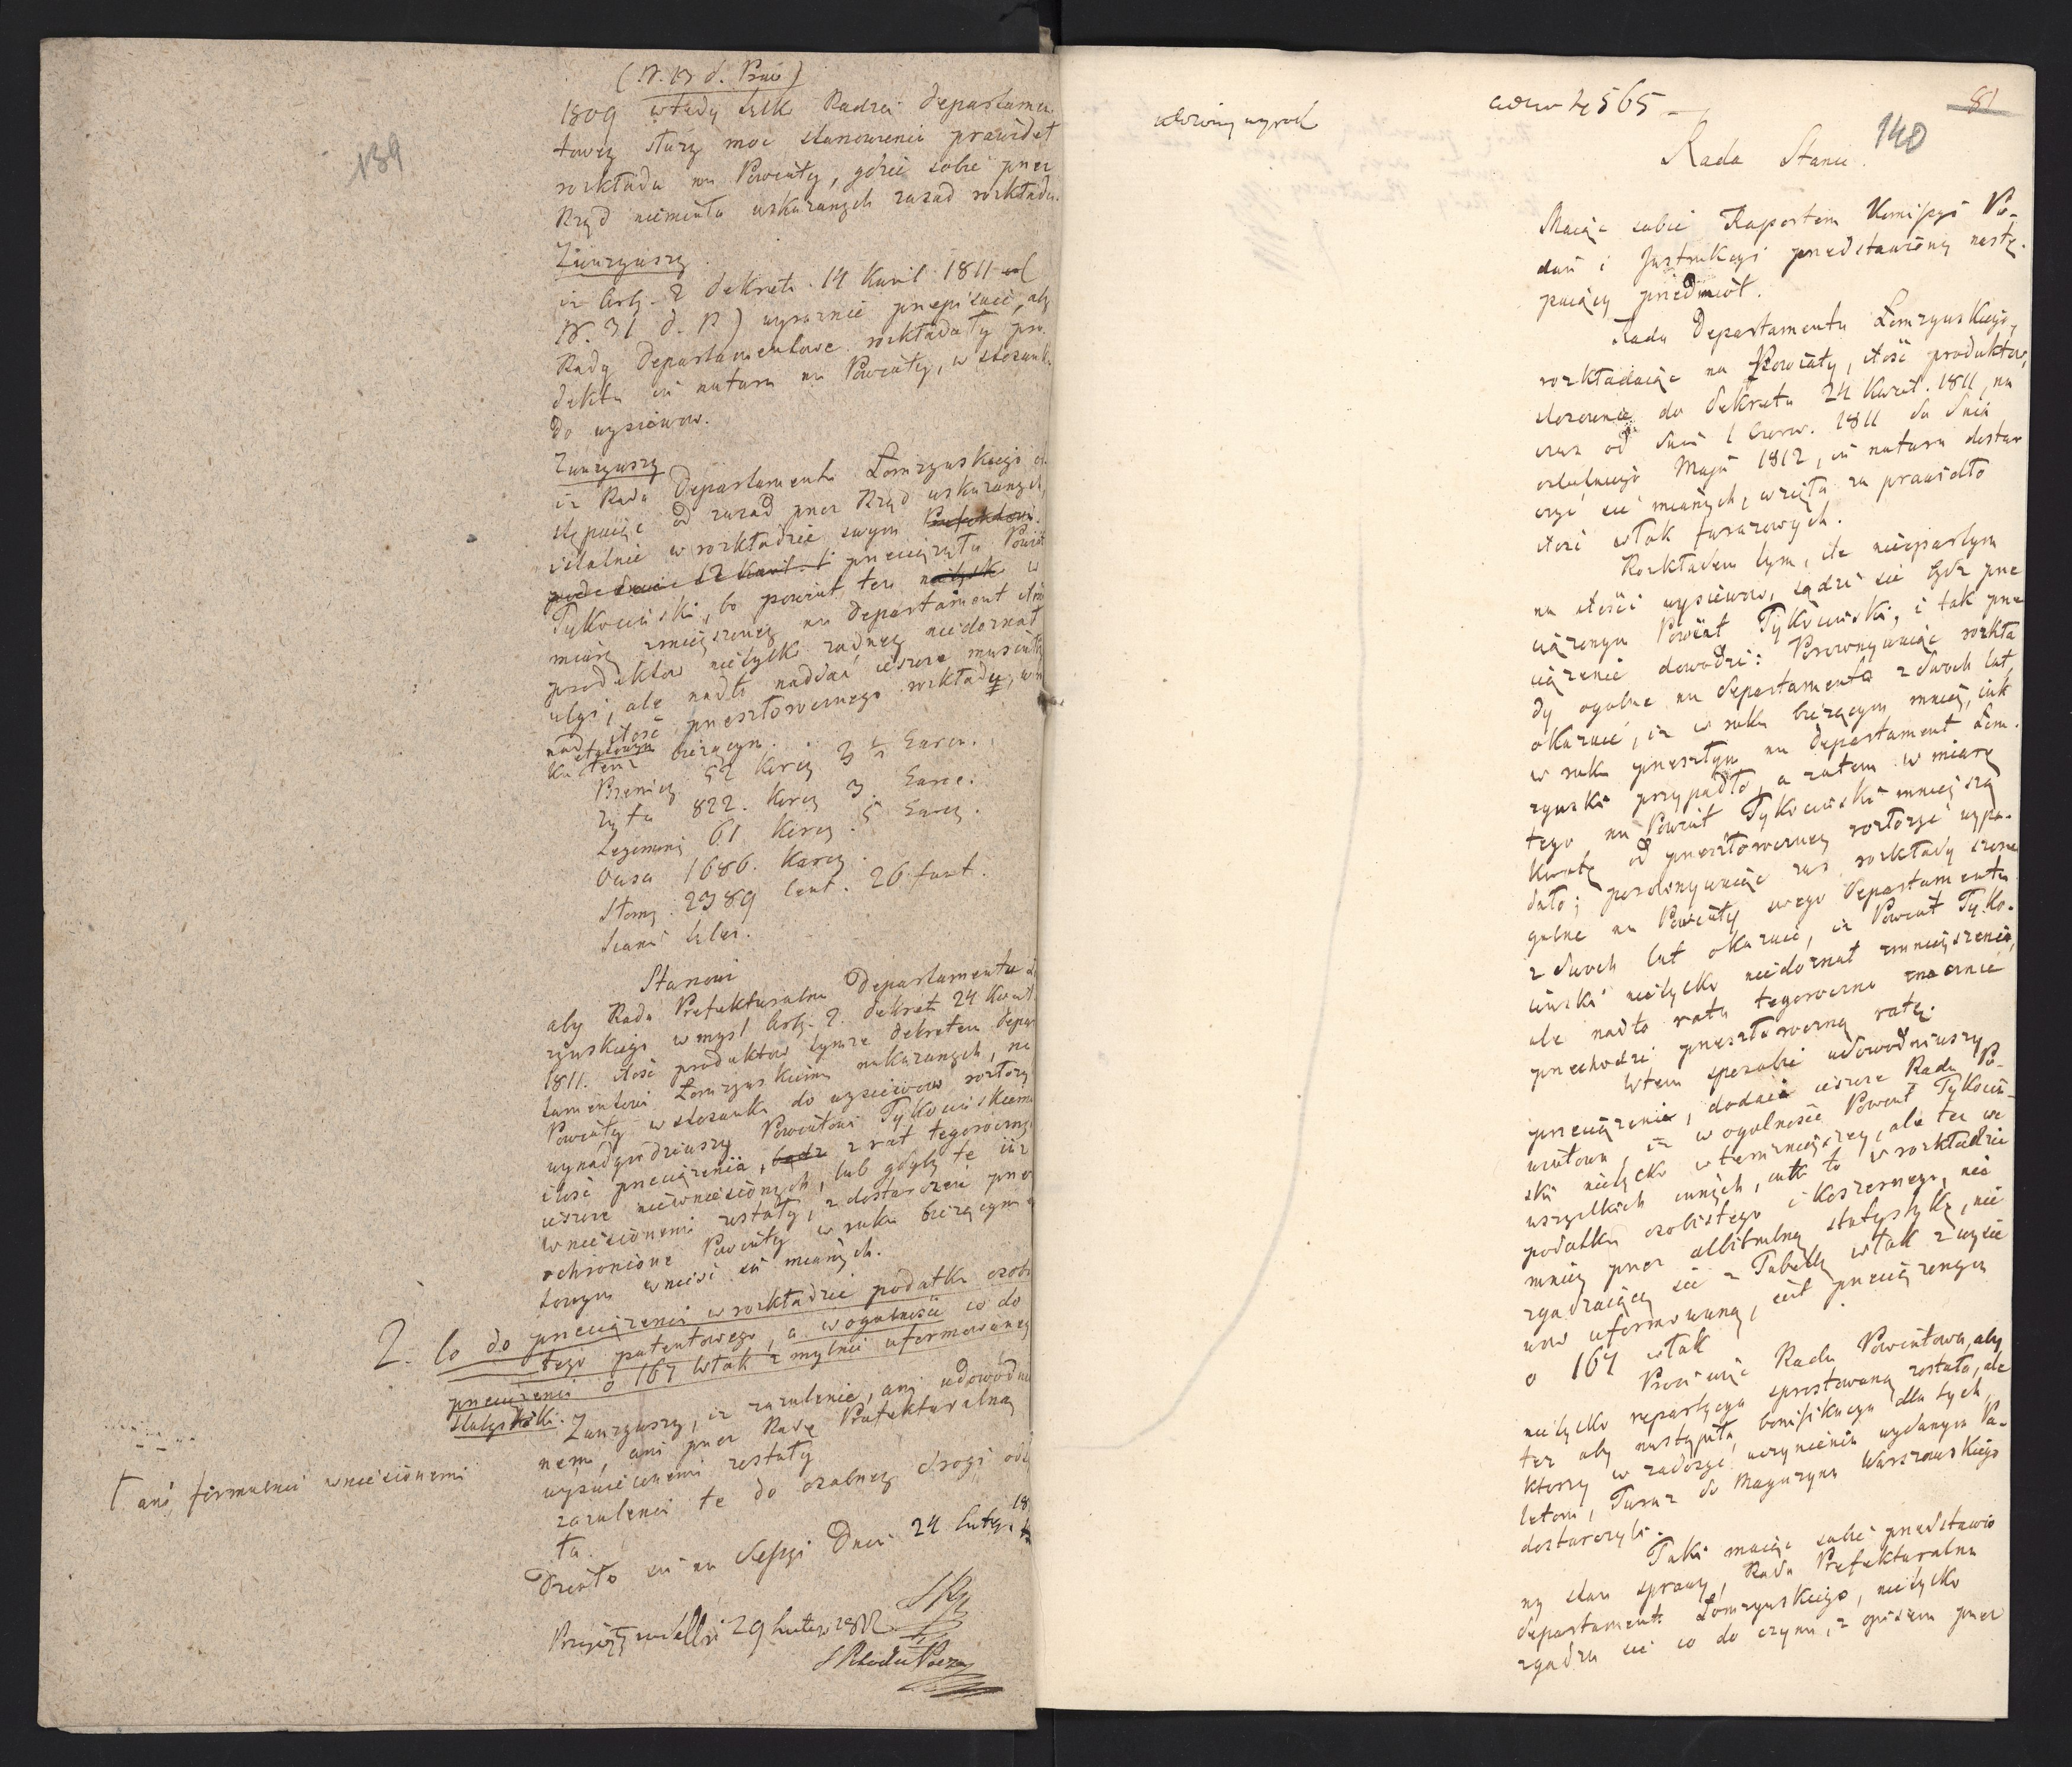 139
(N. 13 d. Praw)
1809 władzy tylko Radzie Departamen
towey służy moc stanowienia prawideł
rozkładu na Powiaty, gdzie sobie przez
Rząd niemiała wskazanych zasad rozkładu.
Zważywszy
iż Art. 2 dekretu 14 Kwiet. 1811
N. 31 d. P) wyraźnie przepisuie, aby
Rady Departamentowe rozkładały pro-
dukta in natura na Powiaty, w stosunku
do wysiewow.
Zważywszy
iż Rada Departamentu Łomżyńskiego od-
stępuiąc od zasad przez Rząd wskazanych,
istotnie w rozkładzie swym
przeciążyła Powiat
Tykociński, bo powiat ten w
miarę zmnieyszoney na Departament ilości
produktow nietylko żadney niedoznał
ulgi, ale nadto naddać ieszcze musiałby
nad ilość przeszłorocznego rozkładu, w ro
ku teraz bieżącym.
Pszenicy 52 Korcy 3 ½ Garcy.
Żyta 822. Korcy 3. Garce.
Legumini 61 Korcy 5 Garcy.
Owsa 1686. Korcy.
Słomy 2389 Cent. 26 funt.
Siana tyleż.
Stanowi
aby Rada Prefekturalna Departamentu Łom
żyńskiego w myśl Art. 2. dekret. 24 Kwiet.
1811. ilość produktow tymże dekretem depar
tamentowi Łomżyńskiemu nakazanych, na
Powiaty w stosunku do wysiewow rozłoży
wynadgrodziwszy Powiatowi Tykocińskiemu
ilość przeciążenia, bądź z rat tegorocznych
ieszcze niewniesionych, lub gdyby te iuż
wniesionemi zostały, z dostarczeń przez
ochronione Powiaty w roku bieżącym
towym wnieść się maiących.
2. Co do przeciążenia w rozkładzie podatku osobi
stego patentowego, a w ogulności co do
przeciążenia o 167 Włok z mylnie uformowaney
statystyki.
Zważywszy, iż zażalenie, ani udowodnio
nem, ani przez Radę Prefekturalną
wyświeconemi zostały
zażalenia te do osobney drogi ode
ła.
Γ ani formalnie wniesionemi
Działo się na Sessyi Dnia 24 Lutego 18
Przyięty na dniu 29 Lutego 1812
81
140
ad No 4565
Rada Stanu.
Maiąc sobie Raportem Kommissyi Po-
dań i Instrukcyi przedstawiony nastę-
puiący przedmiot.
Rada Departamentu Łomżyńskiego,
rozkładaiąc na Powiaty, ilość produktow,
stosownie do dekretu 24 Kwiet. 1811, na
czas od dnia 1 Czerw. 1811 do dnia
ostatniego Maja 1812, in natura dostar
czyć się maiących, wzięła za prawidło
ilość włok furażowych.
Rozkładem tym, ile nieopartym
na ilości wysiewow, sądzi się bydź prze
ciążonym Powiat Tykociński, i tak prze
ciążenie dowodzi: Porownywaiąc rozkła
dy ogolne na departamenta z dwoch lat,
okazuie, iż w roku bieżącym mniey, iak
w roku przeszłym na Departament Łom-
żyński przypadło, a zatem w miarę
tego na Powiat Tykociński mnieyszą
kwotę od przeszłoroczney rozłożyć wypa-
dało; porownywaiąc zaś rozkłady szcze
gulne na Powiaty swego departamentu
z dwoch lat okazuie, iż Powiat Tyko-
ciński nietylko niedoznał zmnieyszenia,
ale nadto rata tegoroczna znacznie
przechodzi przeszłoroczną ratę.
W tem sposobie udowodniwszy
przeciążenie, dodaie ieszcze Rada Po-
wiatowa, iż w ogulności Powiat Tykociń-
ski nietylko w teraznieyszey, ale też we
wszystkich innych, iak to w rozkładzie
podatku osobistego i koszernego, nie
mniey przez arbitralną statystykę, nie
zgadzaiącą się z Tabellą włok z wysie
wow uformowaną, iest przeciążonym
o 167 włok
Prosi więc Rada Powiatowa, aby
nietylko repartycya sprostowaną została, ale
też aby nastąpiła bonifikacya dla tych,
ktorzy w zadosyć uczynieniu wydanym Pa-
letom, Furaż do Magazynu Warszawskiego
dostarczyli.
Taki maiąc sobie przedstawio
ny stan sprawy, Rada Prefekturalna
Departament: Łomżyńskiego, nietylko
zgadza się co do czynu, z opisem przez